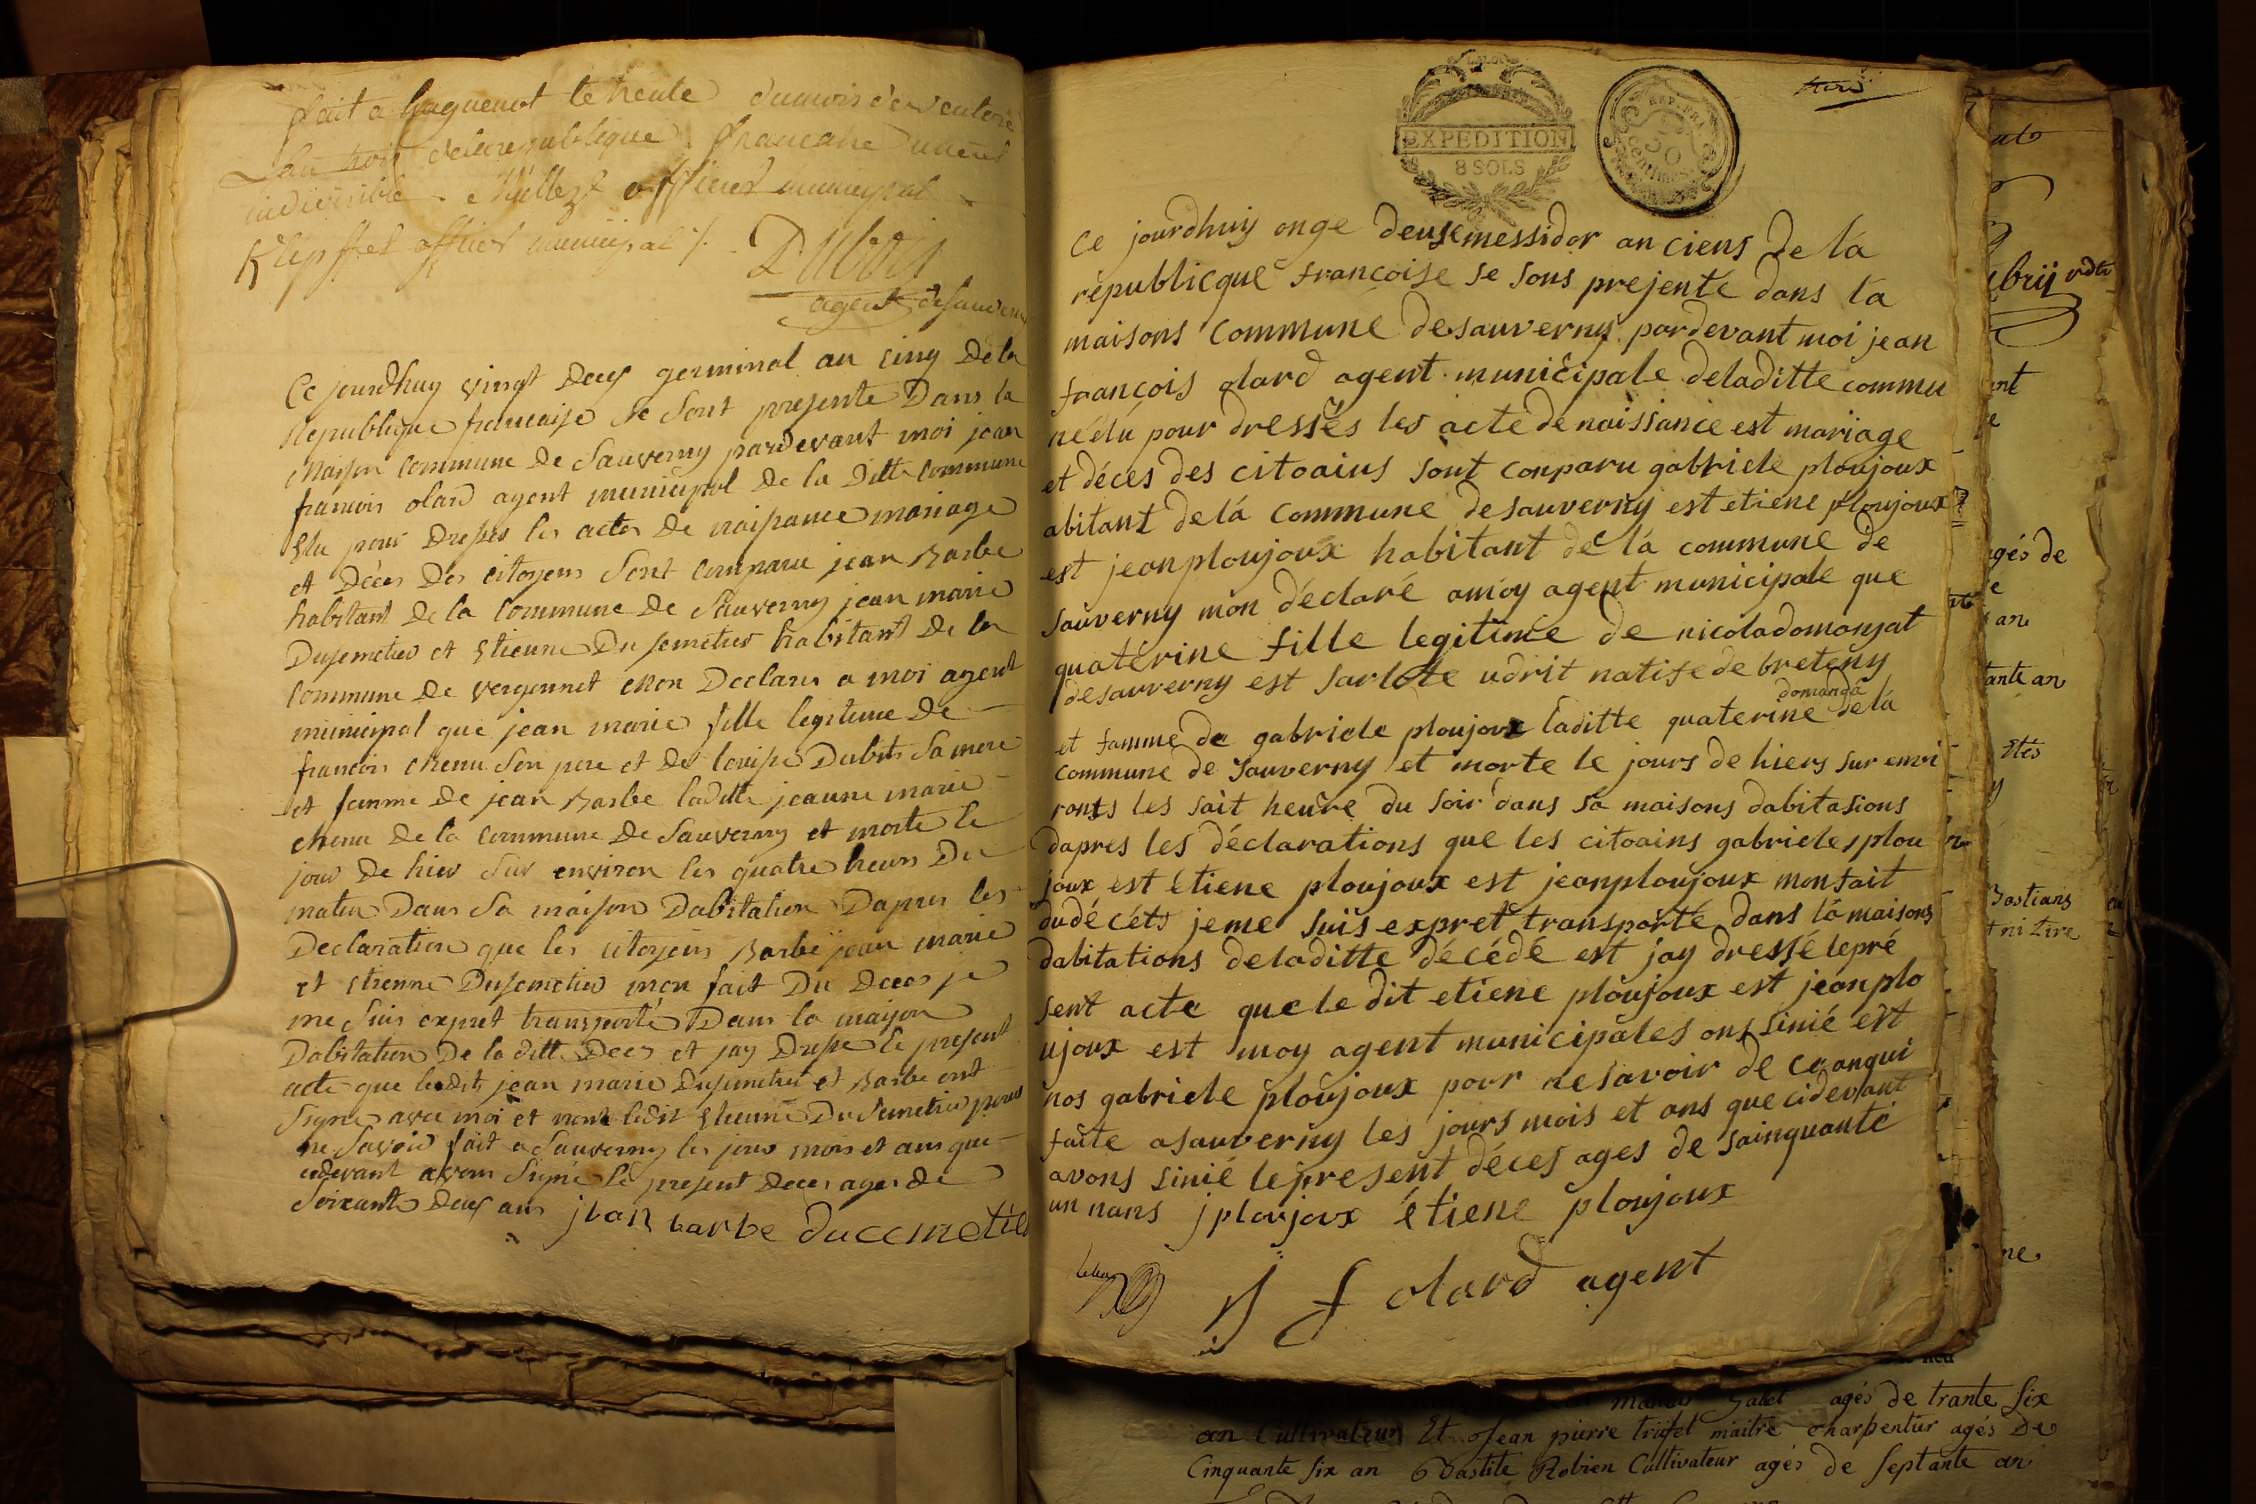 fait a haguenot le trente du mois de ventose
l'an trois de la republique francaise une et
indivisible officier municipal
Klepffer officier municipal /.
Dubois
agent de sauverny
Ce jourdhuy vingt deux germinal an cinq de la
Republique francaise se sont presente Dans la
Maison commune De Sauverny pardevant moi jean
francois olard agent municipal De la Ditte commune
Elu pour Dresses les actes De naissance mariage
et Déces Des citoyens Sont comparu jean Barbe
habitant De la Commune De Sauverny jean marie
Dusemetier et Etienne Du semetier habitant De la
Commune De vergennet mon Declares a moi agent
municipal que jean marie fille legitime De
francois chenu Son pere et De louise Dubits Sa mere
et femme De jean Barbe laditte jeanne marie
chenu De la Commune De Sauverny et morte le
jour De hier Sur environ les quatre heurs Du
matin Dans Sa maison Dabitation Dapres les
Declaration que les citoyens Barbe jean marie
et Etienne Dusemetier mon fait Du Deces je
me Suis expret transporté Dans la maison
Dabitation De la ditte Deces et jay Dresse le present
acte que lesdits jean marie Dusemetier et Barbe ont
Signe avec moi et non ledit Etienne Du Semetier pour
ne Savoir fait a Sauverny les jour mois et ans que
cidevant avons Signé le present Deces ages De
Soixante Deux ans jean barbe ducemetier
EXPEDITION
8 SOLS
REP. FRA.
50
centimes
Ce jourdhuy onge deuxemessidor an ciens De la
républicque francoise se sons prejente dans la
maisons commune desauverny pardevant moi jean
françois olard agent municipale deladitte commu
ne élú pour dressés les acte de naissance est mariage
et déces des citoains sont conparu gabriele ploujoux
abitant delá commune desauverny est etiene ploujoux
est jeanploujoux habitant de lá commune de
sauverny mon déclaré amoy agent municipale que
quaterine fille legitime de nicoladomanjat
desauverny est sarlote udrit natife de breteny
et famme de gabriele ploujoux laditte quaterine domanda delá
commune de sauverny et morte le jours de hiers sur envi
ronts les sait heure du soir dans sa maisons dabitasions
dapres les déclarations que les citoains gabriele plou
joux est étiene ploujoux est jeanploujoux monfait
dudécéts jeme suis expret transporté dans lá maisons
dabitations deladitte décédé est jay dressé lepré
sent acte que le dit etiene ploujoux est jeanplo
ujoux est moy agent municipáles ons sinié est
nos gabriele ploujoux pour nesavoir de ce anqui
faite asauverny les jours mois et ans que cidevant
avons sinié le present déces ages de sainquante
un nans jploujoux étiene ploujoux
j f olard agent
ubrij
agés de
tante an
Bastians
agés de trante six
an Cultivateur Et Jean pierre trifet maitre charpentier agés De
Cinquante six an Bastite Robien Cultivateur agés de septante an